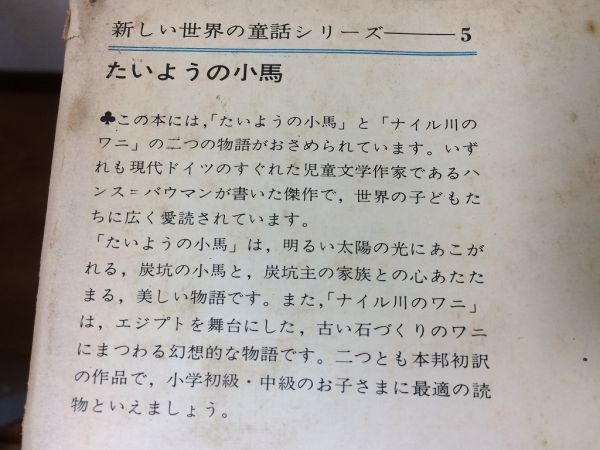 新しい世界の童話シリーズ――5
たいようの小馬
♣この本には,「たいようの小馬」と「ナイル川の
ワニ」の二つの物語がおさめられています。いず
れも現代ドイツのすぐれた児童文学作家であるハ
ンス=バウマンが書いた傑作で，世界の子どもた
ちに広く愛読されています。
「たいようの小馬」は，明るい太陽の光にあこが
れる，炭坑の小馬と，炭坑主の家族との心あたた
まる，美しい物語です。また,「ナイル川のワニ」
は，エジプトを舞台にした，古い石づくりのワニ
にまつわる幻想的な物語です。二つとも本邦初訳
の作品で，小学初級・中級のお子さまに最適の読
物といえましょう。